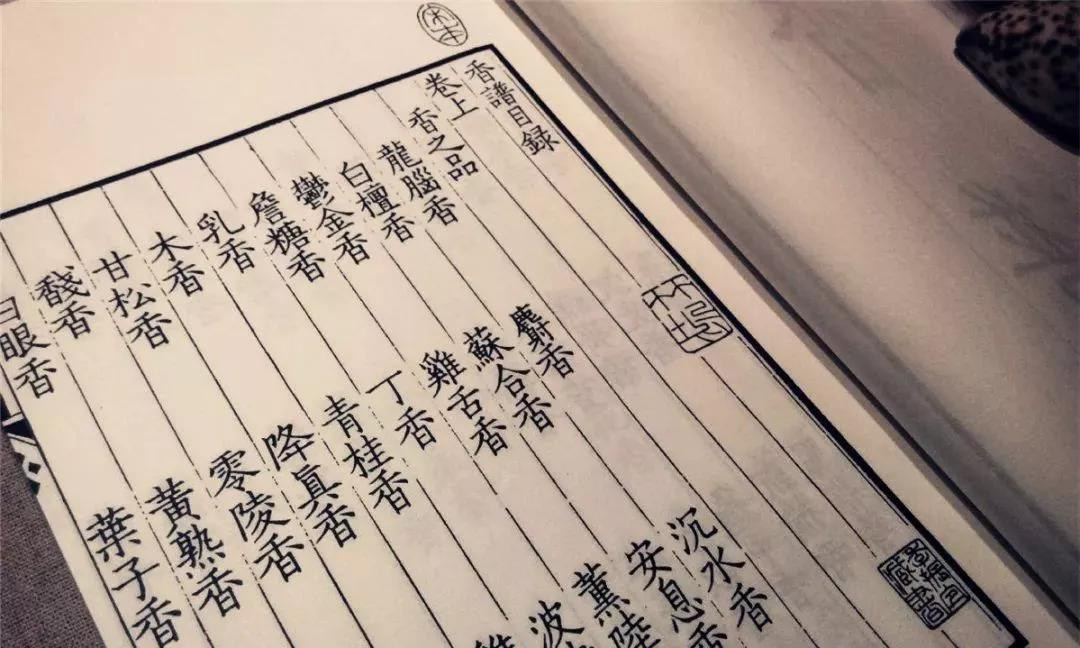 香譜目録
卷上
香之品
龍腦香 麝香 沉水香
白檀香 蘇合香 安息香
鬱金香 雞舌香 薰陸
詹糖香 丁香 波
乳香 青桂香
木香 降真香
甘松香 零陵香
馢香 黃熟香
白眼香 葉子香